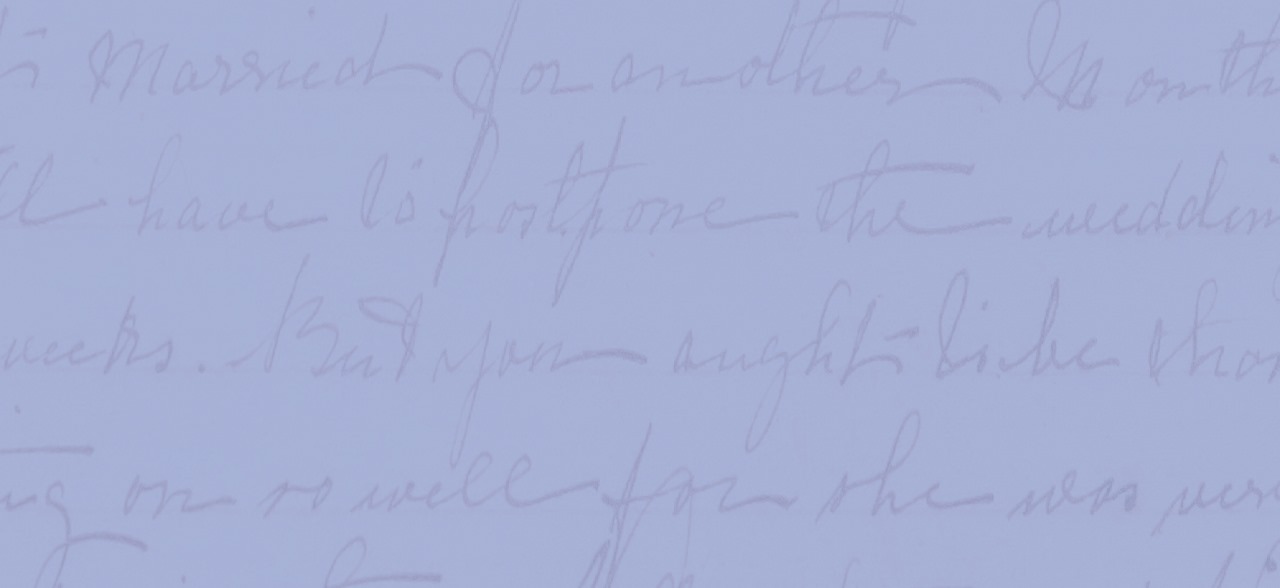 Married for another Month
have to postpone the weddin
weeks. But you aught to be
on so well for she was